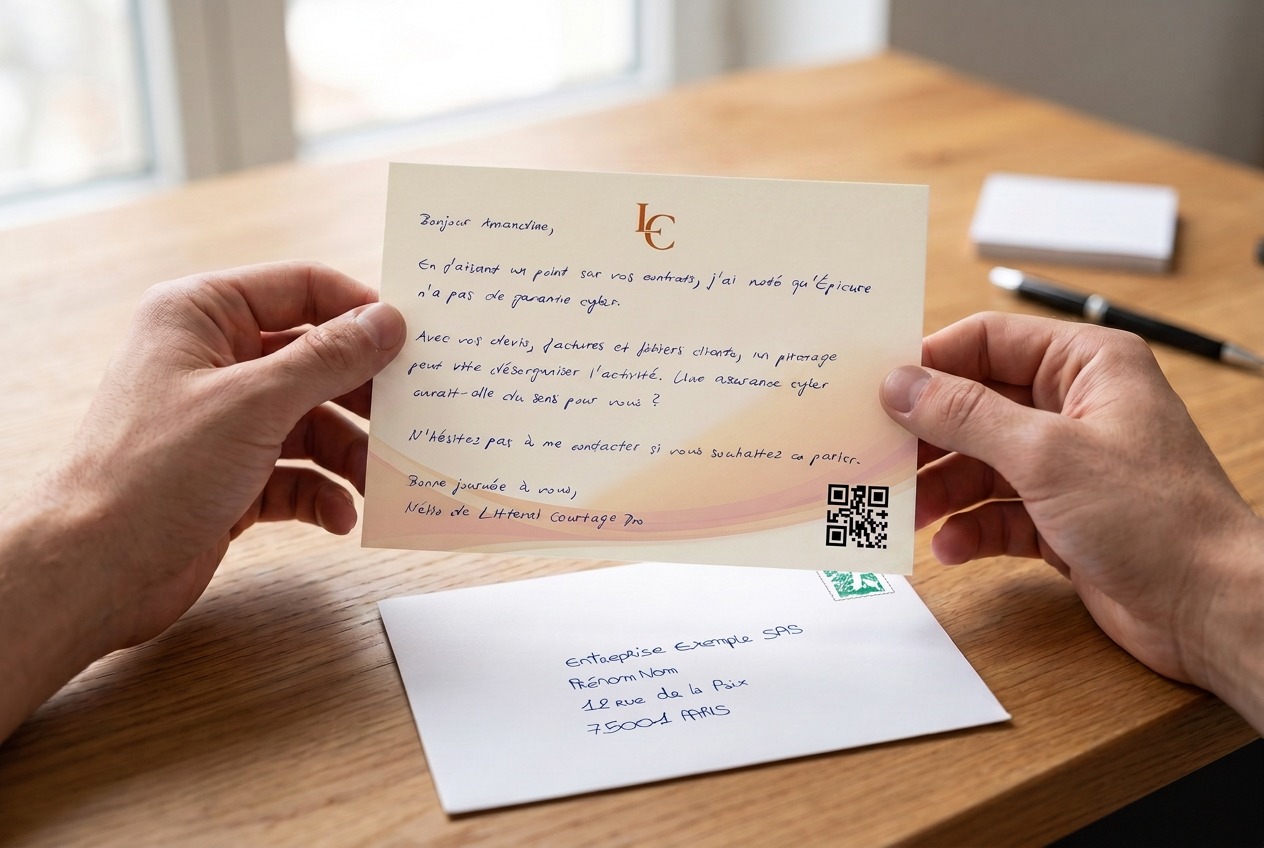 LC
Bonjour Amandine,
En faisant un point sur vos contrats, j'ai noté qu'Épicure
n'a pas de garantie cyber.
Avec vos devis, factures et fichiers clients, un piratage
peut vite désorganiser l'activité. Une assurance cyber
aurait-elle du sens pour vous ?
N'hésitez pas à me contacter si vous souhaitez en parler.
Bonne journée à vous,
de Littoral Courtage Pro
Entreprise Exemple SAS
Prénom Nom
12 rue de la Paix
75001 PARIS